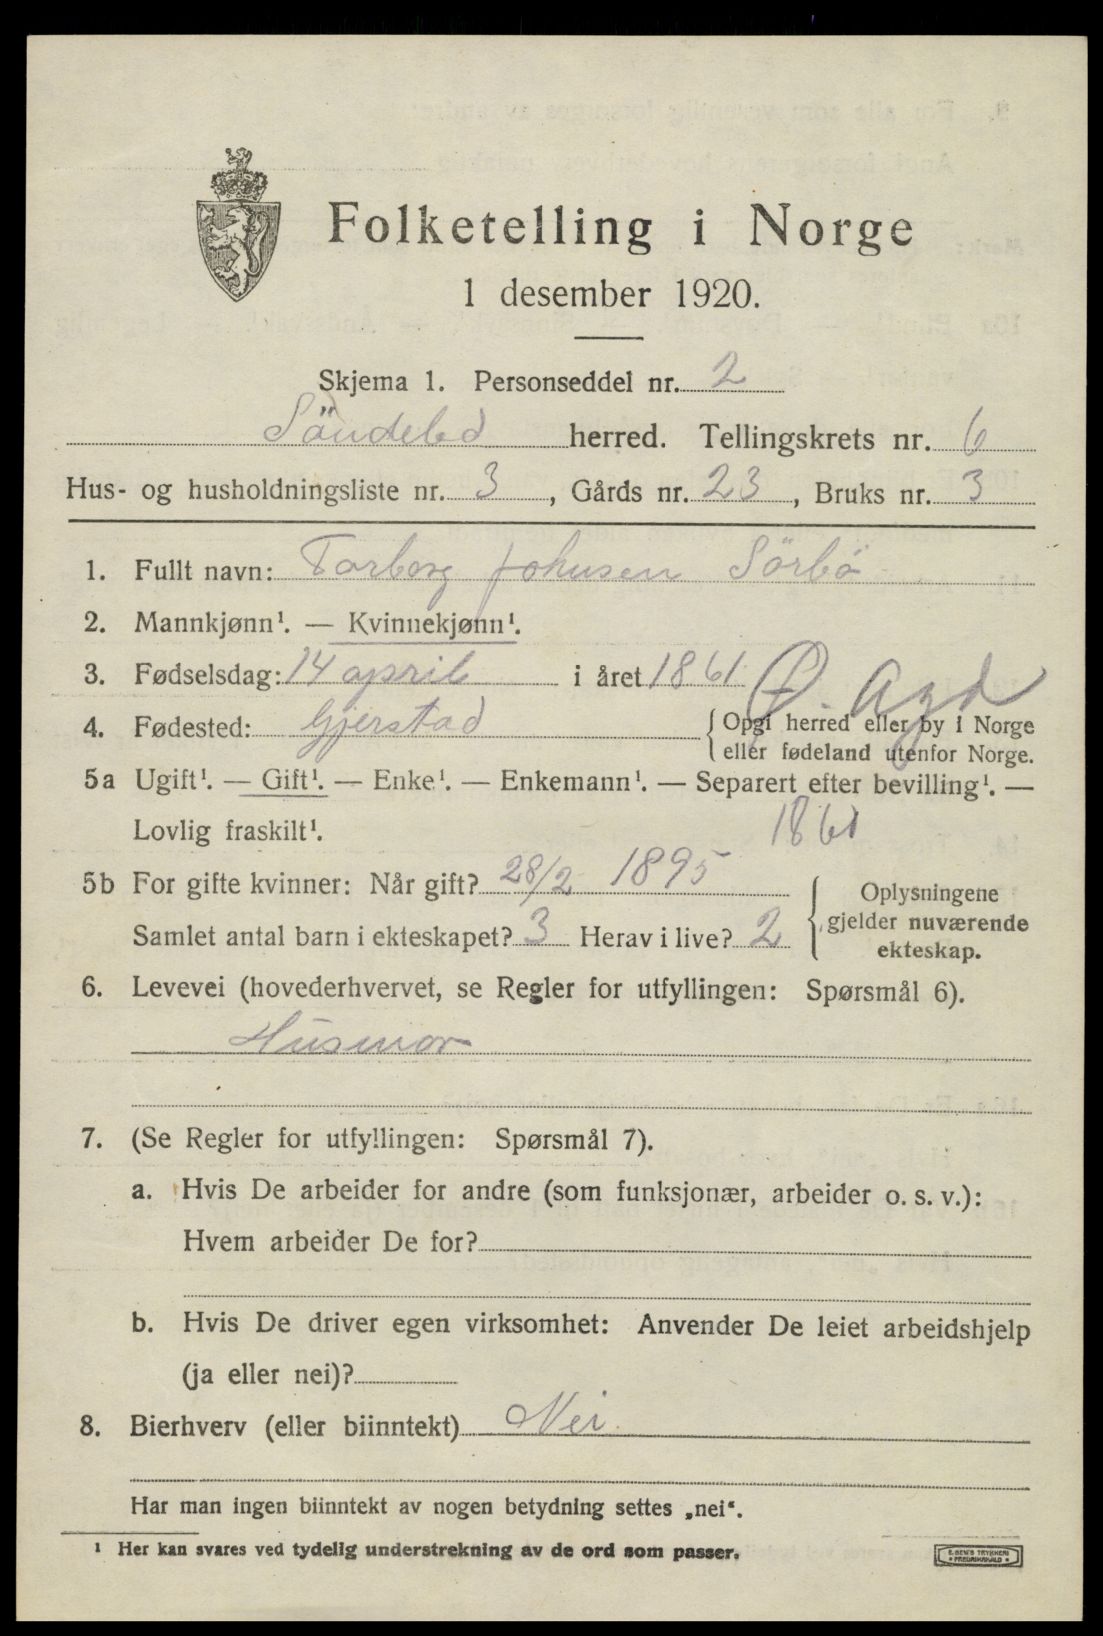 Folketelling i Norge
1 desember 1920.
Skjema 1. Personseddel nr. 2
Söndeled herred. Tellingskrets nr. 6
Hus- og husholdningsliste nr. 3, Gårds nr. 23, Bruks nr. 3
1. Fullt navn: Torborg Johnsen Sörbö
2. Mannkjønn¹. — Kvinnekjønn¹.
3. Fødselsdag: 14 april i året 1861 Ø. Agd
4. Fødested: Gjerstad { Opgi herred eller by i Norge
eller fødeland utenfor Norge.
5a Ugift¹. — Gift¹. — Enke¹. — Enkemann¹. — Separert efter bevilling¹. —
Lovlig fraskilt¹. 1861
5b For gifte kvinner: Når gift? 28/2 1895
Samlet antal barn i ekteskapet? 3 Herav i live? 2
{ Oplysningene
gjelder nuværende
ekteskap.
6. Levevei (hovederhvervet, se Regler for utfyllingen: Spørsmål 6).
Husmor
7. (Se Regler for utfyllingen: Spørsmål 7).
a. Hvis De arbeider for andre (som funksjonær, arbeider o. s. v.):
Hvem arbeider De for?
b. Hvis De driver egen virksomhet: Anvender De leiet arbeidshjelp
(ja eller nei)?
8. Bierhverv (eller biinntekt) Nei
Har man ingen biinntekt av nogen betydning settes „nei“.
¹ Her kan svares ved tydelig understrekning av de ord som passer.